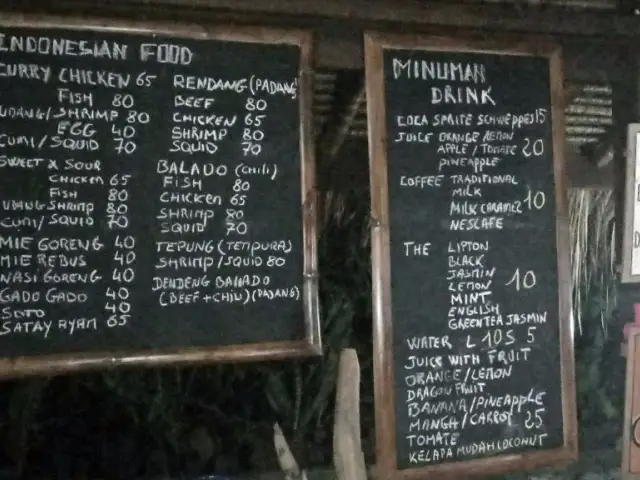 INDONESIAN FOOD
CURRY CHICKEN 65
FISH 80
UDANG/SHRIMP 80
EGG 40
CUMI/SQUID 70
SWEET & SOUR
CHICKEN 65
FISH 80
UDANG SHRIMP 80
CUMI/SQUID 70
MIE GORENG 40
MIE REBUS 40
NASI GORENG 40
GADO GADO 40
SOTO 40
SATAY AYAM 65
RENDANG (PADANG)
BEEF 80
CHICKEN 65
SHRIMP 80
SQUID 70
BALADO (CHILI)
FISH 80
CHICKEN 65
SHRIMP 80
SQUID 70
TEPUNG (TEMPURA)
SHRIMP/SQUID 80
DENDENG BALADO
(BEEF + CHILI) (PADANG)
MINUMAN
DRINK
COCA SPRITE SCHWEPPES 15
JUICE ORANGE LEMON
APPLE / TOMATE 20
PINEAPPLE
COFFEE TRADITIONAL
MILK
MILK CARAMEL 10
NESCAFE
THE LIPTON
BLACK
JASMIN
LEMON 10
MINT
ENGLISH
GREEN TEA JASMIN
WATER L 10 S 5
JUICE WITH FRUIT
ORANGE/LEMON
DRAGON FRUIT
BANANA/PINEAPPLE
MANGA/CARROT 25
TOMATE
KELAPA MUDAH COCONUT